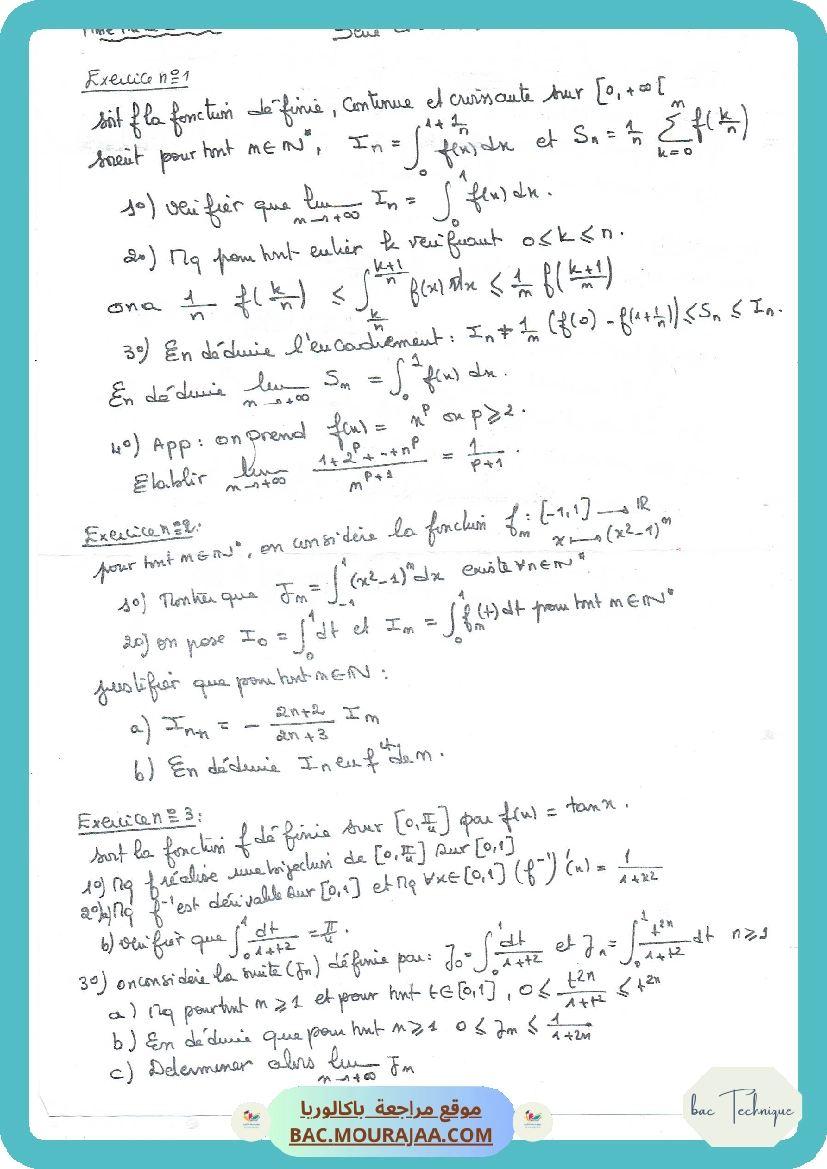 Exercice n°1
soit f la fonction définie, continue et croissante sur [0,+∞[
soient pour tout n∈ℕ*, Iₙ = ∫₀^{1+1/n} f(x)dx et Sₙ = 1/n Σ_{k=0}^{n} f(k/n)
1°) Verifier que lim_{n→+∞} Iₙ = ∫₀¹ f(x)dx.
2°) Mq pour tout entier k verifiant 0≤k≤n.
on a 1/n f(k/n) ≤ ∫_{k/n}^{(k+1)/n} f(x)dx ≤ 1/n f((k+1)/n)
3°) En déduire l'encadrement : Iₙ + 1/n (f(0) - f(1+1/n)) ≤ Sₙ ≤ Iₙ.
En déduire lim_{n→+∞} Sₙ = ∫₀¹ f(x)dx.
4°) App : on prend f(x) = x^p où p≥2.
Etablir lim_{n→+∞} (1+2^p+--+n^p)/n^{p+1} = 1/(p+1).
Exercice n°2:
pour tout n∈ℕ*, on considère la fonction fₙ : [-1,1] → ℝ
x ↦ (x²-1)ⁿ
1°) Montrer que Jₙ = ∫₋₁¹ (x²-1)ⁿ dx existe ∀n∈ℕ*
2°) on pose I₀ = ∫₀¹ dt et Iₙ = ∫₀¹ fₙ(t)dt pour tout n∈ℕ*
justifier que pour tout n∈ℕ :
a) Iₙ₊₁ = - (2n+2)/(2n+3) Iₙ
b) En déduire Iₙ en f^{ct} de n.
Exercice n°3:
soit la fonction f définie sur [0,π/4] par f(x) = tan x.
1°) Mq f réalise une bijection de [0,π/4] sur [0,1]
2°) a) Mq f⁻¹ est dérivable sur [0,1] et Mq ∀x∈[0,1] (f⁻¹)'(x) = 1/(1+x²)
b) Verifier que ∫₀¹ dt/(1+t²) = π/4.
3°) on considère la suite (Jₙ) définie par : J₀ = ∫₀¹ dt/(1+t²) et Jₙ = ∫₀¹ t^{2n}/(1+t²) dt n≥1
a) Mq pour tout n≥1 et pour tout t∈[0,1], 0≤ t^{2n}/(1+t²) ≤ t^{2n}
b) En déduire que pour tout n≥1 0≤ Jₙ ≤ 1/(1+2n)
c) Determiner alors lim_{n→+∞} Jₙ
bac Technique
موقع مراجعة باكالوريا
BAC.MOURAJAA.COM